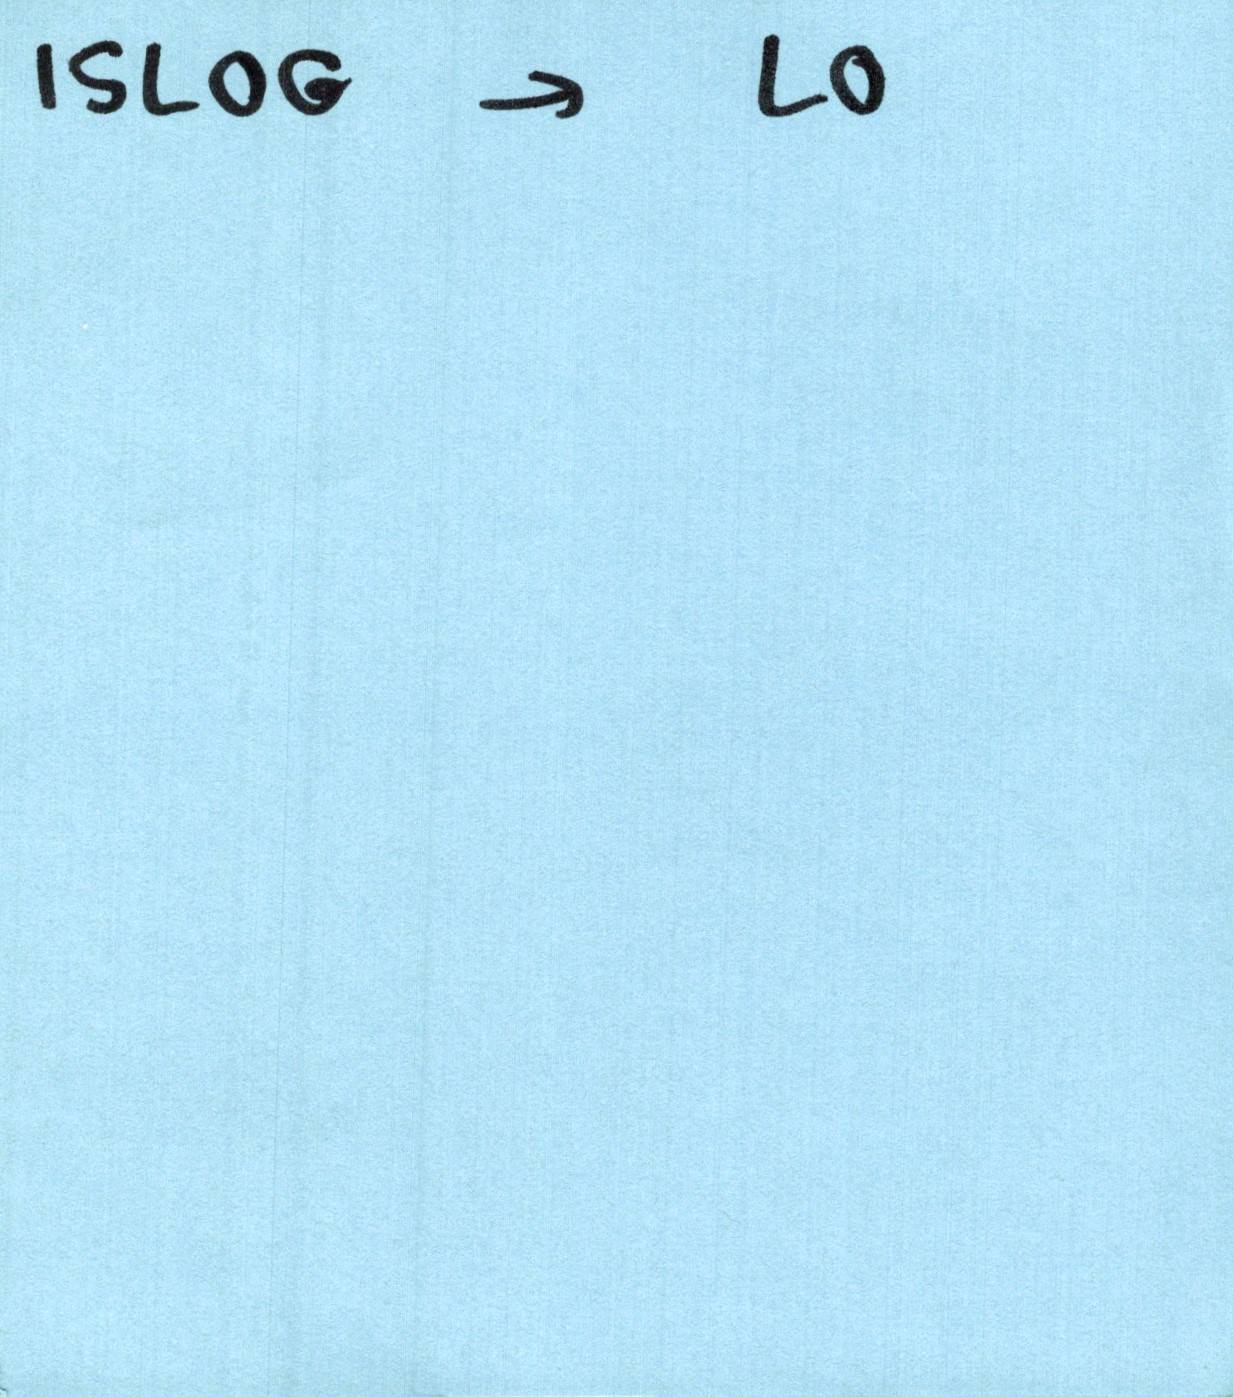 ISLOG → LO